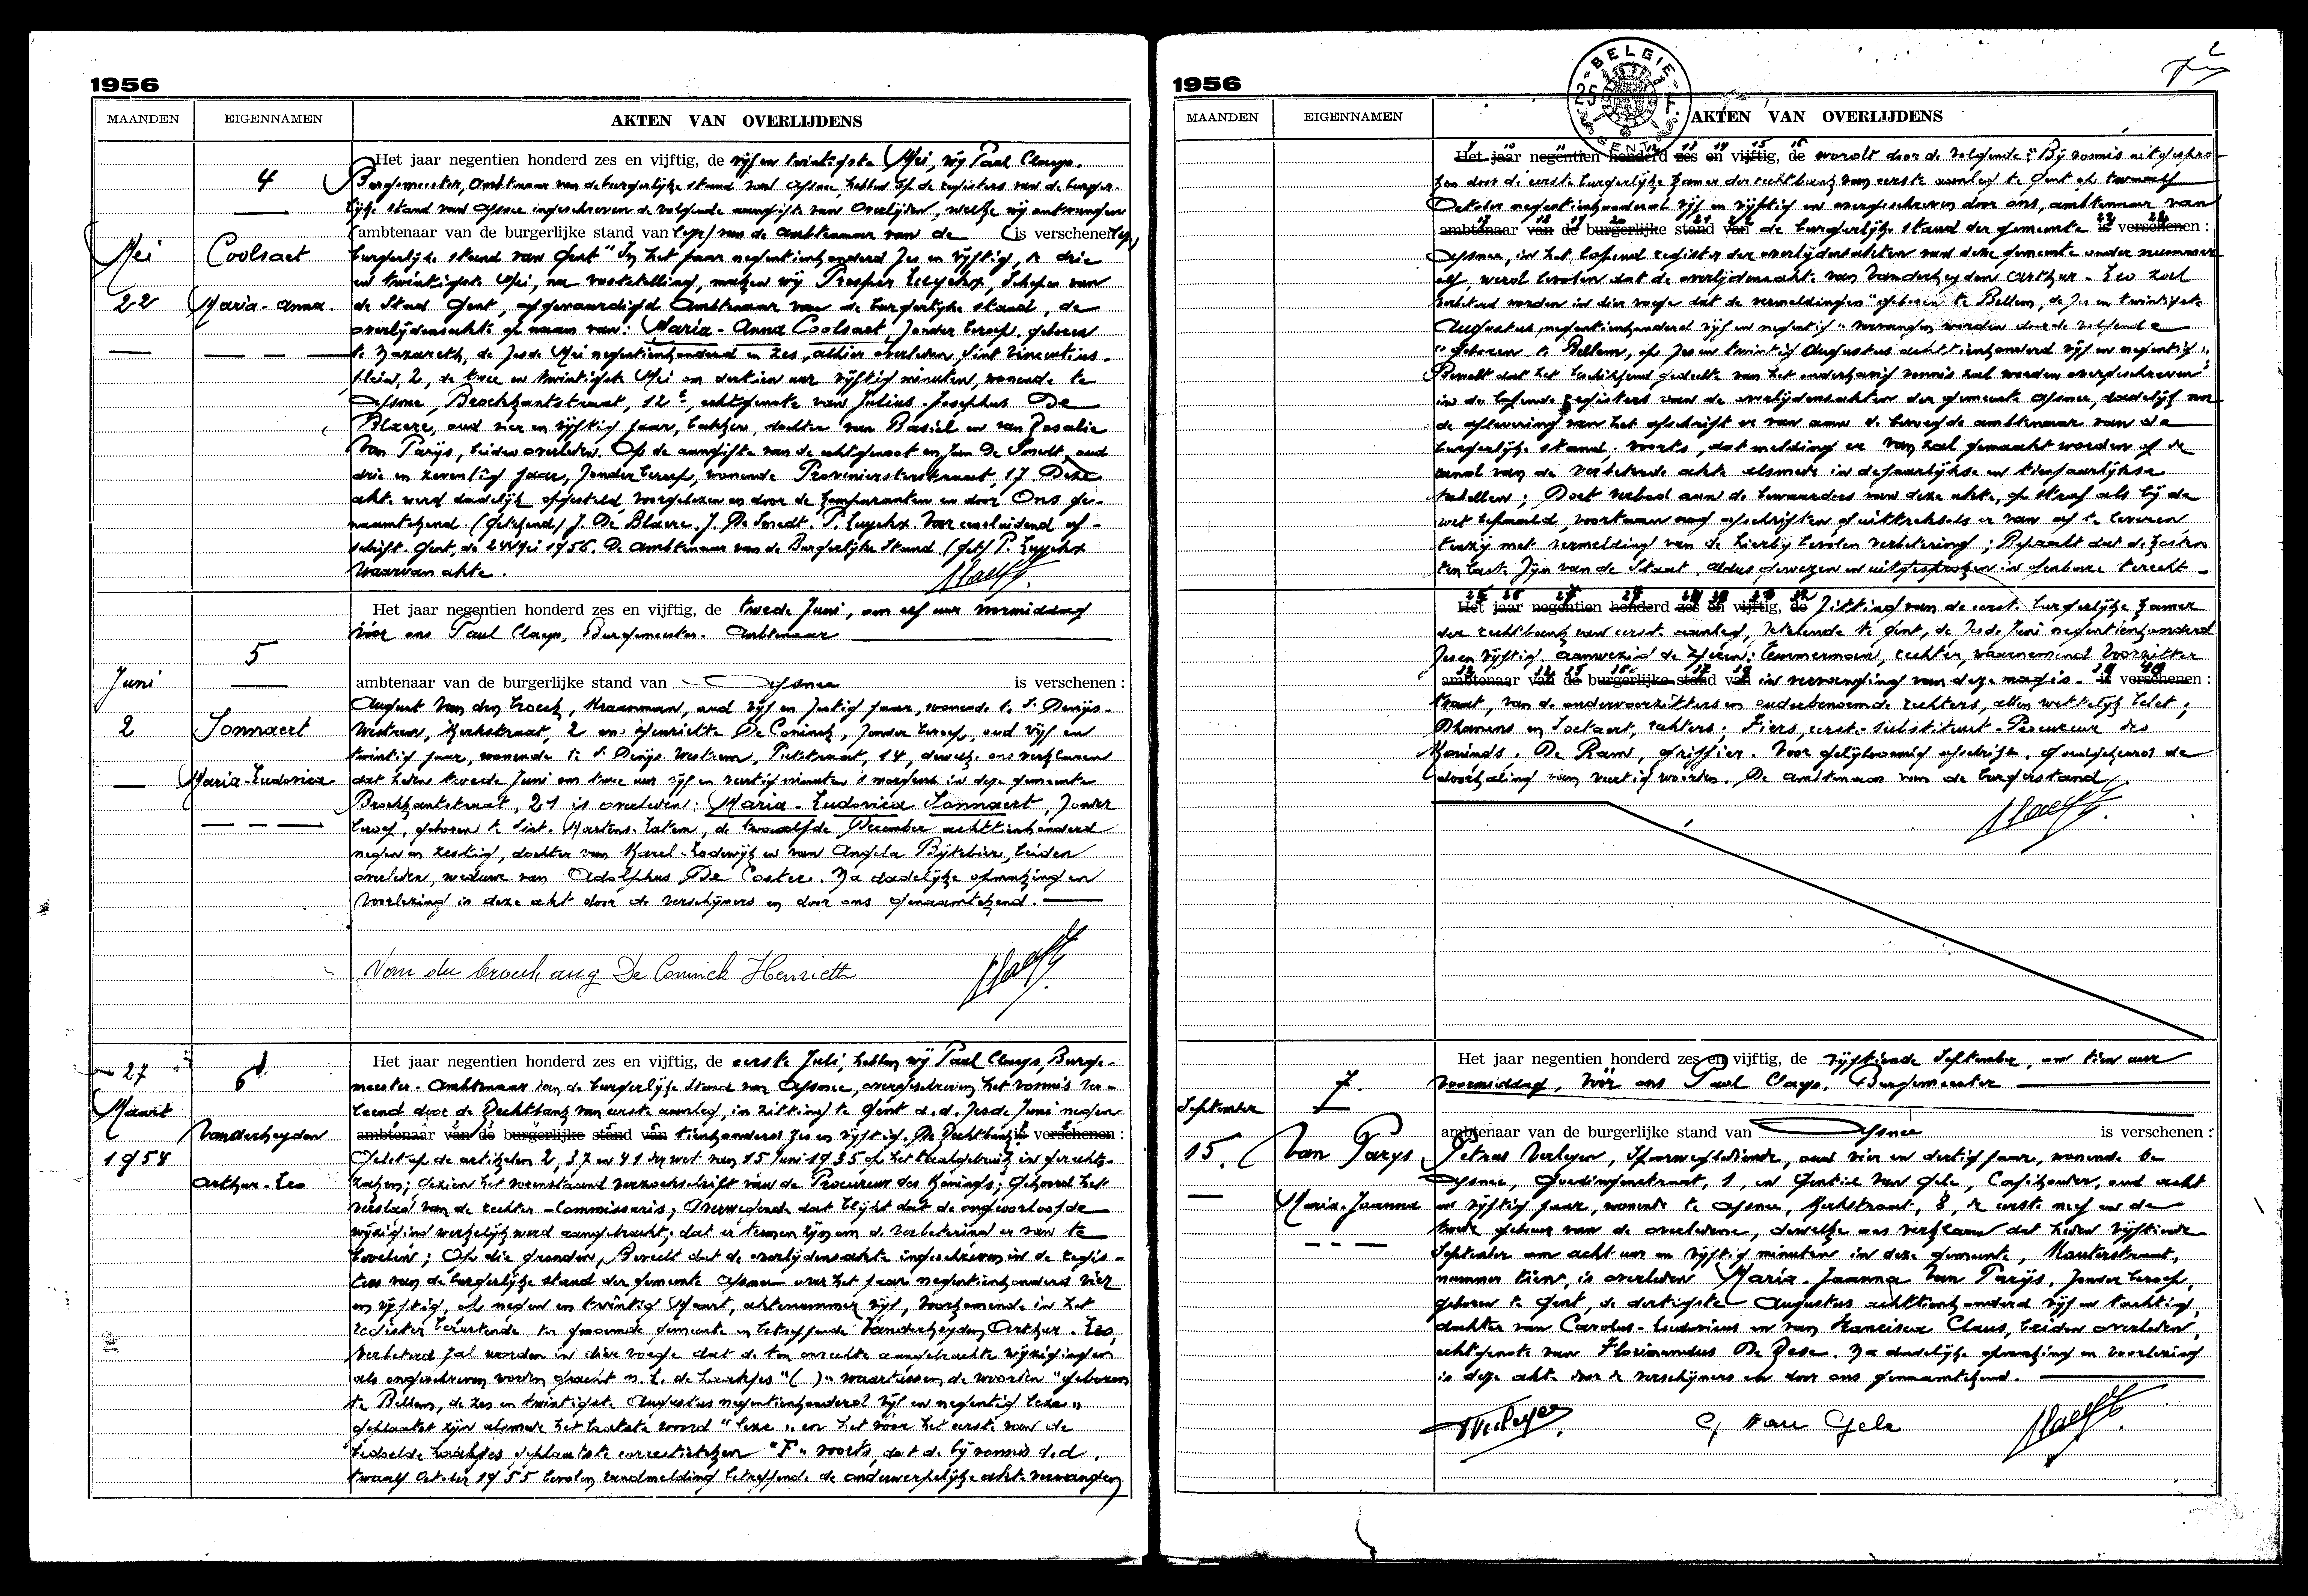 1956
MAANDEN EIGENNAMEN AKTEN VAN OVERLIJDENS
4
Mei
22
Coolsaet
Maria-Anna.
Het jaar negentien honderd zes en vijftig, de vijf en twintigste Mei, wij Paul Claeys.
Burgemeester, Ambtenaar van de burgerlijke stand van Afsnee, hebben op de registers van de burger-
lijke stand van Afsnee ingeschreven de volgende aangifte van Overlijden, welke wij ontvangen
ambtenaar van de burgerlijke stand van van de Ambtenaar van de is verschenen
burgerlijke stand van Gent "In het jaar negentienhonderd zes en vijftig, de drie
en twintigste Mei, na vaststelling, maken wij Prosper Luyckx, Schepen van
de Stad Gent, afgevaardigd Ambtenaar van de burgerlijke stand, de
overlijdensakte op naam van: Maria-Anna Coolsaet, zonder beroep, geboren
te Nazareth, de zesde Mei negentienhonderd en zes, alhier overleden Sint Vincentius-
plein, 2, de twee en twintigste Mei om dertien uur vijftig minuten, wonende te
Afsnee, Broekkantstraat, 12, echtgenote van Julius-Josephus De
Blaere, oud vier en vijftig jaar, bakker, dochter van Basiel en van Rosalie
Van Parijs, beiden overleden. Op de aangifte van de echtgenoot en Jan De Smedt, oud
drie en zeventig jaar, zonder beroep, wonende Provenierstersstraat, 17. Deze
akte werd dadelijk opgesteld, voorgelezen en door de komparanten en door Ons ge-
naamtekend. (Getekend) J. De Blaere. J. De Smedt. P. Luyckx. Voor eensluidend af-
schrift. Gent, de 24 Mei 1956. De Ambtenaar van de Burgerlijke Stand (get) P. Luyckx
Waarvan akte.
5
Juni
2
Sonnaert
Maria-Ludovica
Het jaar negentien honderd zes en vijftig, de tweede Juni, om elf uur voormiddag
vóór ons Paul Claeys, Burgemeester. Ambtenaar
ambtenaar van de burgerlijke stand van Afsnee is verschenen :
August Van den broeck, oud vijf en zestig jaar, wonende te S. Denijs-
Westrem, Kerkstraat, 2 en Henriette De Coninck, zonder beroep, oud vijf en
twintig jaar, wonende te S. Denijs Westrem, Putstraat, 14, dewelke ons verklaren
dat heden tweede Juni om twee uur vijf en veertig minuten 's morgens in deze gemeente
Broekkantstraat, 21 is overleden: Maria-Ludovica Sonnaert, zonder
beroep, geboren te Sint-Martens-Latem, de twaalfde December achttienhonderd
negen en zestig, dochter van Karel-Lodewijk en van Angela Bijtebier, beiden
overleden, weduwe van Adolphus De Coster. Na dadelijke opmaking en
voorlezing is deze akte door de verschijners en door ons genaamtekend.
Van den broeck aug De Coninck Henriette
27
Maart
1954
6
Vanderheyden
Arthur-Leo
Het jaar negentien honderd zes en vijftig, de eerste Juli, hebben wij Paul Claeys, Burge-
meester-Ambtenaar van de burgerlijke stand van Afsnee, overgeschreven het vonnis ver-
leend door de Rechtbank van eerste aanleg, in zitting te Gent d.d. zesde Juni negen
ambtenaar van de burgerlijke stand van tienhonderd zes en vijftig. De Rechtbank is verschenen :
Gelet op de artikelen 2, 37 en 41 der wet van 15 Juni 1935 op het taalgebruik in gerechts-
zaken; Gezien het voorstaand verzoekschrift van de Procureur des Konings; Gehoord het
verslag van de rechter-Commissaris; Overwegende dat blijkt dat de ongeoorloofde
wijziging werkelijk werd aangebracht; dat er termen zijn om de verbetering er van te
bevelen; Op die gronden, Beveelt dat de overlijdensakte ingeschreven in de regis-
ters van de burgerlijke stand der gemeente Afsnee over het jaar negentienhonderd vier
en vijftig, op negen en twintig Maart, aktenummer vijf, voorkomende in het
register berustende ter genoemde gemeente en betreffende Vanderheyden Arthur-Leo,
verbeterd zal worden in dier voege dat de ten onrechte aangebrachte wijzigingen
als ongeschreven worden geacht n.l. de haakjes "( )" waartussen de woorden "geboren
te Bellem, de zes en twintigste Augustus negentienhonderd vijf en negentig lees"
geplaatst zijn alsmede het laatste woord "lees" en het vóór het eerste van de
bedoelde haakjes geplaatste correctieteken "F" voorts, dat de bij vonnis d.d.
twaalf October 1955 bevolen randmelding betreffende de onderwerpelijke akte vervangen
1956
BELGIE 25 F. GENT
MAANDEN EIGENNAMEN AKTEN VAN OVERLIJDENS
Het jaar negentien honderd zes en vijftig, de wordt door de volgende: "Bij vonnis uitgespro-
ken door de eerste burgerlijke kamer der rechtbank van eerste aanleg te Gent op twaalf
October negentienhonderd vijf en vijftig en overgeschreven door ons, ambtenaar van
ambtenaar van de burgerlijke stand van de burgerlijke stand der gemeente is verschenen :
Afsnee, in het lopend register der overlijdensakten van deze gemeente onder nummer
elf, werd bevolen dat de overlijdensakte van Vanderheyden Arthur-Leo zal
verbeterd worden in dier voege dat de vermeldingen "geboren te Bellem, de zes en twintigste
Augustus negentienhonderd vijf en negentig" vervangen worden door de volgende
"geboren te Bellem, op zes en twintig Augustus achttienhonderd vijf en negentig";
Beveelt dat het beschikkend gedeelte van het onderhavig vonnis zal worden overgeschreven
in de lopende registers van de overlijdensakten der gemeente Afsnee, dadelijk na
de aflevering van het afschrift er van aan de bevoegde ambtenaar van de
burgerlijke stand; voorts, dat melding er van zal gemaakt worden op de
rand van de verbeterde akte alsmede in de jaarlijkse en tienjaarlijkse
tabellen; Doet verbod aan de bewaarders van deze akte, op straf als bij de
wet bepaald, voortaan nog afschriften of uittreksels er van af te leveren
tenzij met vermelding van de hierbij bevolen verbetering; Bepaalt dat de kosten
ten laste zijn van de Staat. Aldus gewezen en uitgesproken in openbare terecht-
Het jaar negentien honderd zes en vijftig, de zitting van de eerste burgerlijke kamer
der rechtbank van eerste aanleg, zetelende te Gent, de zesde Juni negentienhonderd
zes en vijftig. Aanwezig de Heren: Temmerman, rechter, waarnemend Voorzitter
ambtenaar van de burgerlijke stand van in vervanging van deze is verschenen :
traat, van de ondervoorzitters en ouderbenoemde rechters, allen wettelijk belet;
Dhaenens en Soetaert, rechters; Fiers, eerste-substituut-Procureur des
Konings. De Ram, griffier. Voor gelijkvormig afschrift. Goedgekeurd de
doorhaling van veertig woorden. De ambtenaar van de burgerstand
7.
September
15.
Van Parys
Maria-Joanna
Het jaar negentien honderd zes en vijftig, de vijftiende September, om tien uur
voormiddag, vóór ons Paul Claeys, Burgemeester
ambtenaar van de burgerlijke stand van Afsnee is verschenen :
Petrus Verleyen, Spoorwegbediende, oud vier en dertig jaar, wonende te
Afsnee, Goedingenstraat, 1, en Gentiel Van Gele, Cafehouder, oud acht
en vijftig jaar, wonende te Afsnee, Kerkstraat, 8, de eerste neef en de
tweede gebuur van de overledene, dewelke ons verklaren dat heden vijftiende
September om acht uur en vijftig minuten in deze gemeente, Kouterstraat,
nummer tien, is overleden Maria-Joanna Van Parijs, zonder beroep,
geboren te Gent, de dertigste Augustus achttienhonderd vijf en tachtig,
dochter van Carolus-Ludovicus en van Francisca Claus, beiden overleden,
echtgenote van Florimondus De Zese. Na dadelijke opmaking en voorlezing
is deze akte door de verschijners en door ons genaamtekend.
PVerleyen G Van Gele